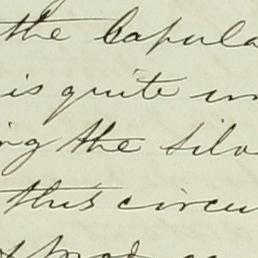 the Capula
is quite un
ing the silv
this circu